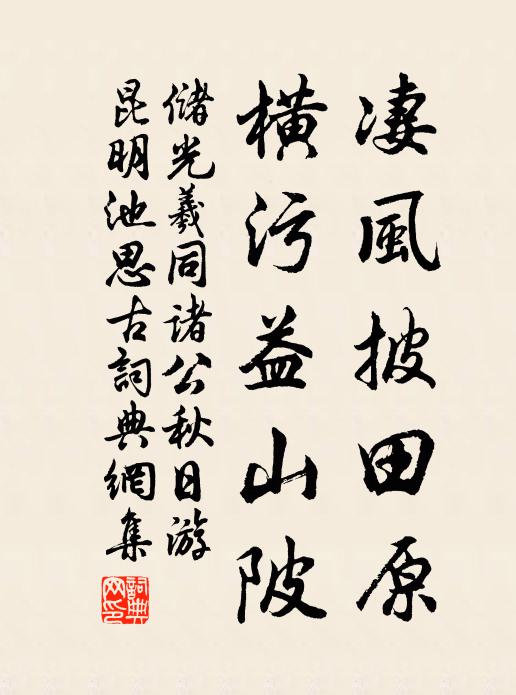 凄風披田原
橫污益山陂
儲光羲同諸公秋日游
昆明池思古詞典網集
詞典网印